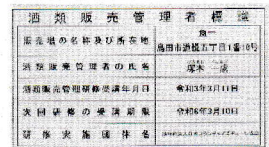 酒類販売管理者標識
販売場の名称及び所在地
魚一
島田市道悦五丁目1番10号
酒類販売管理者の氏名
塚本 一成
酒類販売管理研修受講年月日
令和3年3月11日
次回研修の受講期限
令和6年3月10日
研修実施団体名